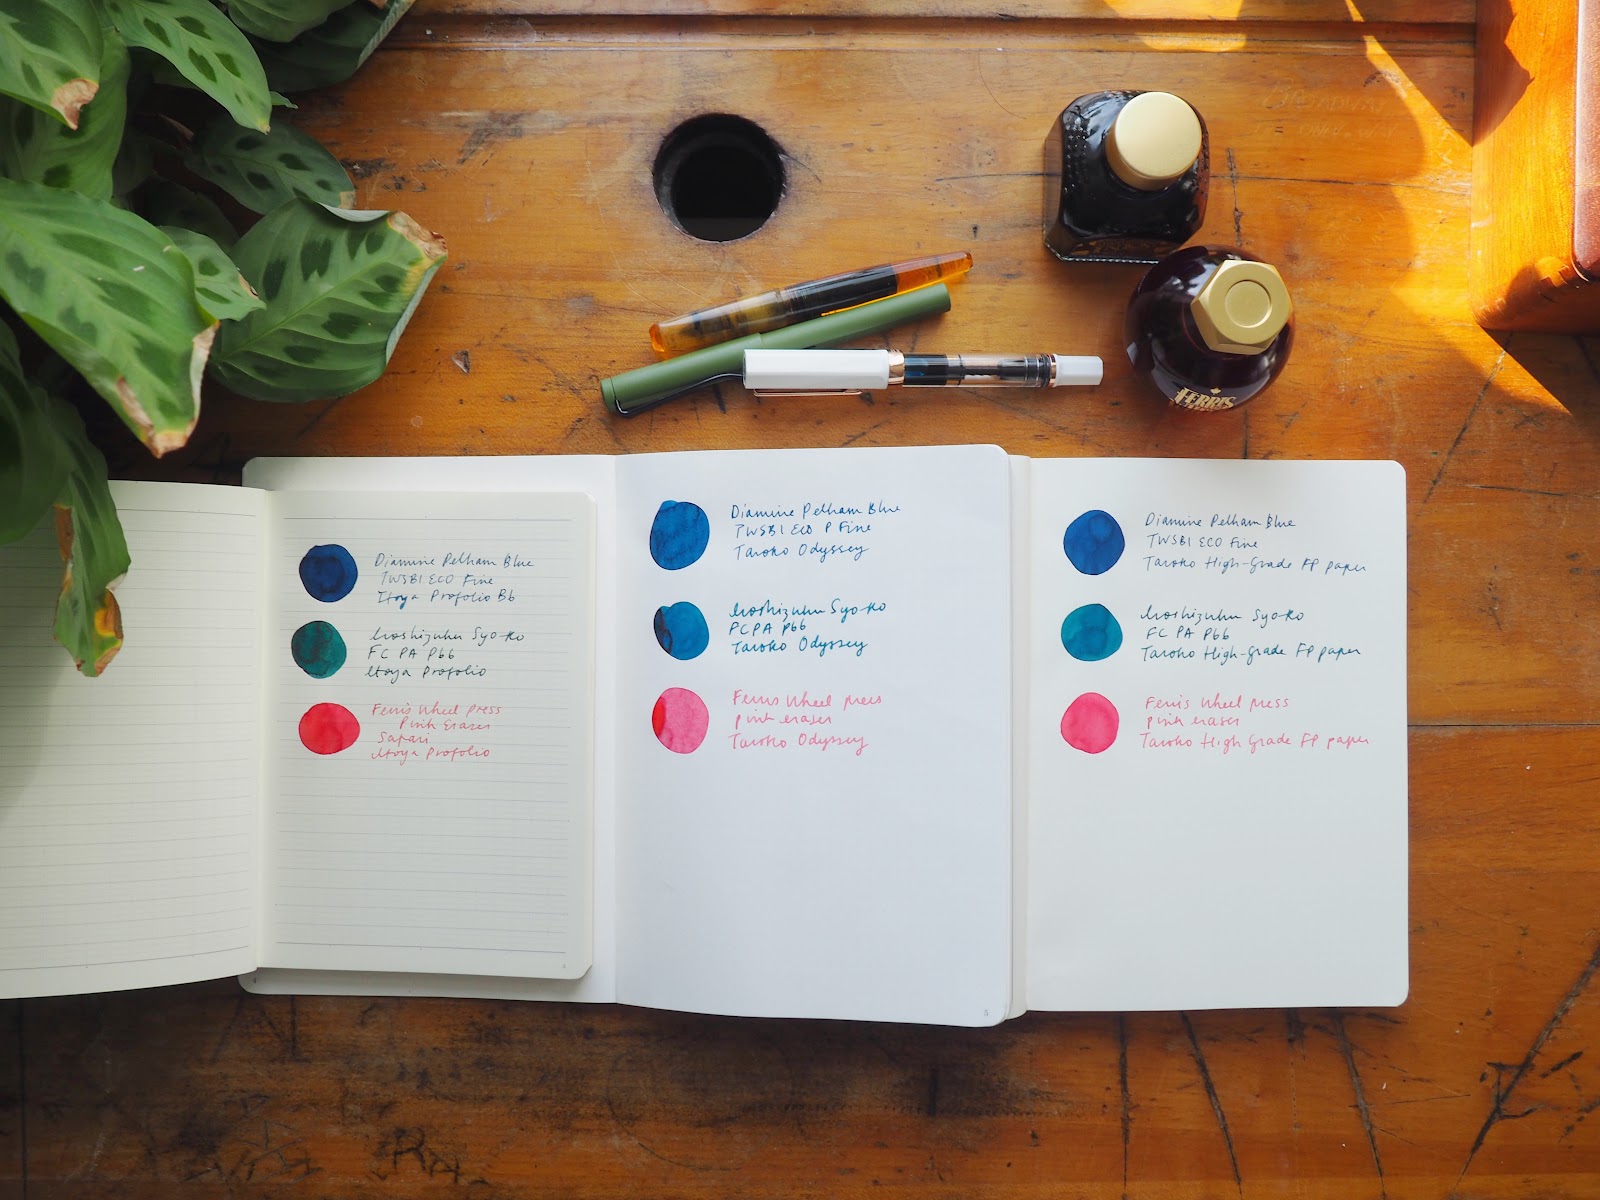 BROADWAY
FERRIS
Diamine Pelham Blue
TWSBI ECO Fine
Itoya Profolio B6
Iroshizuku Syo-ro
FC PA P66
Itoya Profolio
Ferris Wheel press
Pink Eraser
Safari
Itoya Profolio
Diamine Pelham Blue
TWSBI ECO P Fine
Taroko Odyssey
Iroshizuku Syo-ro
FCPA P66
Taroko Odyssey
Ferris Wheel press
pink eraser
Taroko Odyssey
Diamine Pelham Blue
TWSBI ECO Fine
Taroko High-Grade FP paper
Iroshizuku Syo-ro
FC PA P66
Taroko High-Grade FP paper
Ferris Wheel press
pink eraser
Taroko High Grade FP paper